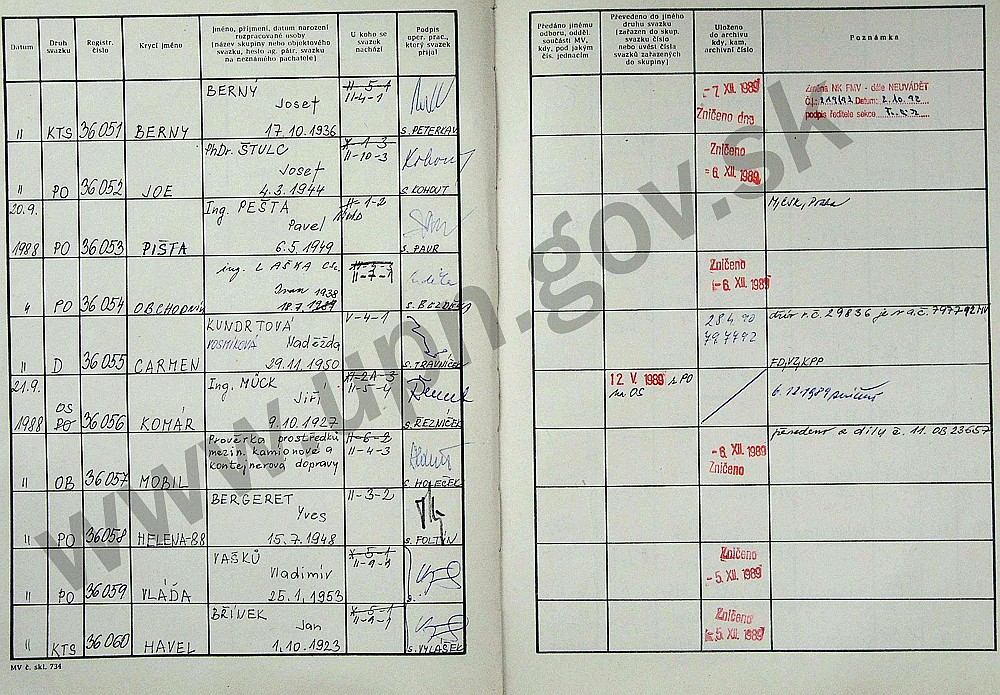 Datum
Druh svazku
Registr. číslo
Krycí jméno
Jméno, příjmení, datum narození
rozpracované osoby
(název skupiny nebo objektového
svazku, heslo ag. pátr. svazku
na neznámého pachatele)
U koho se
svazek
nachází
Podpis
oper. prac.,
který svazek
přijal
Předáno jinému
odboru, odděl.
součásti MV,
kdy, pod jakým
čís. jednacím
Převedeno do jiného
druhu svazku
(zařazen do skup.
svazku číslo
nebo uvést čísla
svazků zařazených
do skupiny)
Uloženo
do archivu
kdy, kam,
archivní číslo
Poznámka
BERNÝ II-5-1
Josef II-4-1
II KTS 36051 BERNY 17.10.1936 S. PETERKA
-7. XII. 1989
Zničeno dne
Změna NK FMV - dále NEUVÁDĚT
Datum: 2.10.92
podpis ředitele sekce
PhDr. ŠTULC X-1-3
Josef II-10-3
II PO 36052 JOE 4.3.1944 S. KOHOUT
Zničeno
-6. XII. 1989
20.9. Ing. PEŠTA II-1-2
Pavel
1988 PO 36053 PIŠTA 6.5.1949 S. PAUR
Praha
ing. LAŠKA CSc.
Ivan 1938 II-7-1
PO 36054 OBCHODNÍK
Zničeno
-6. XII. 1989
KUNDRTOVÁ V-4-1
VOSMIKOVÁ Naděžda
II D 36055 CARMEN 29.11.1950 S. TRAVNÍČEK
28.4.90
797792
21.9. Ing. MŮCK II-2A-3
Jiří II-5-4
OS
1988 PO 36056 KOMÁR 9.10.1927 S. ŘEZNÍČEK
12. V. 1989 z PO
na OS
6.12.1989
Prověrka prostředků II-6-2
mezin. kamionové a II-4-3
kontejnerová dopravy
II OB 36057 MOBIL S. HOLEČEK
-6. XII. 1989
Zničeno
převedeno a díly č. 11. OB 23657
BERGERET II-3-2
Yves
II PO 36058 HELENA-88 15.7.1948 S. FOLTÝN
VAŠKŮ X-5-1
Vladimír II-9-1
II PO 36059 VLÁĎA 25.1.1953 S.
Zničeno
-5. XII. 1989
BŘÍNEK X-5-1
Jan II-9-1
II KTS 36060 HAVEL 1.10.1923 S. VYLAŠEK
Zničeno
-5. XII. 1989
MV č. skl. 734
www.upn.gov.sk